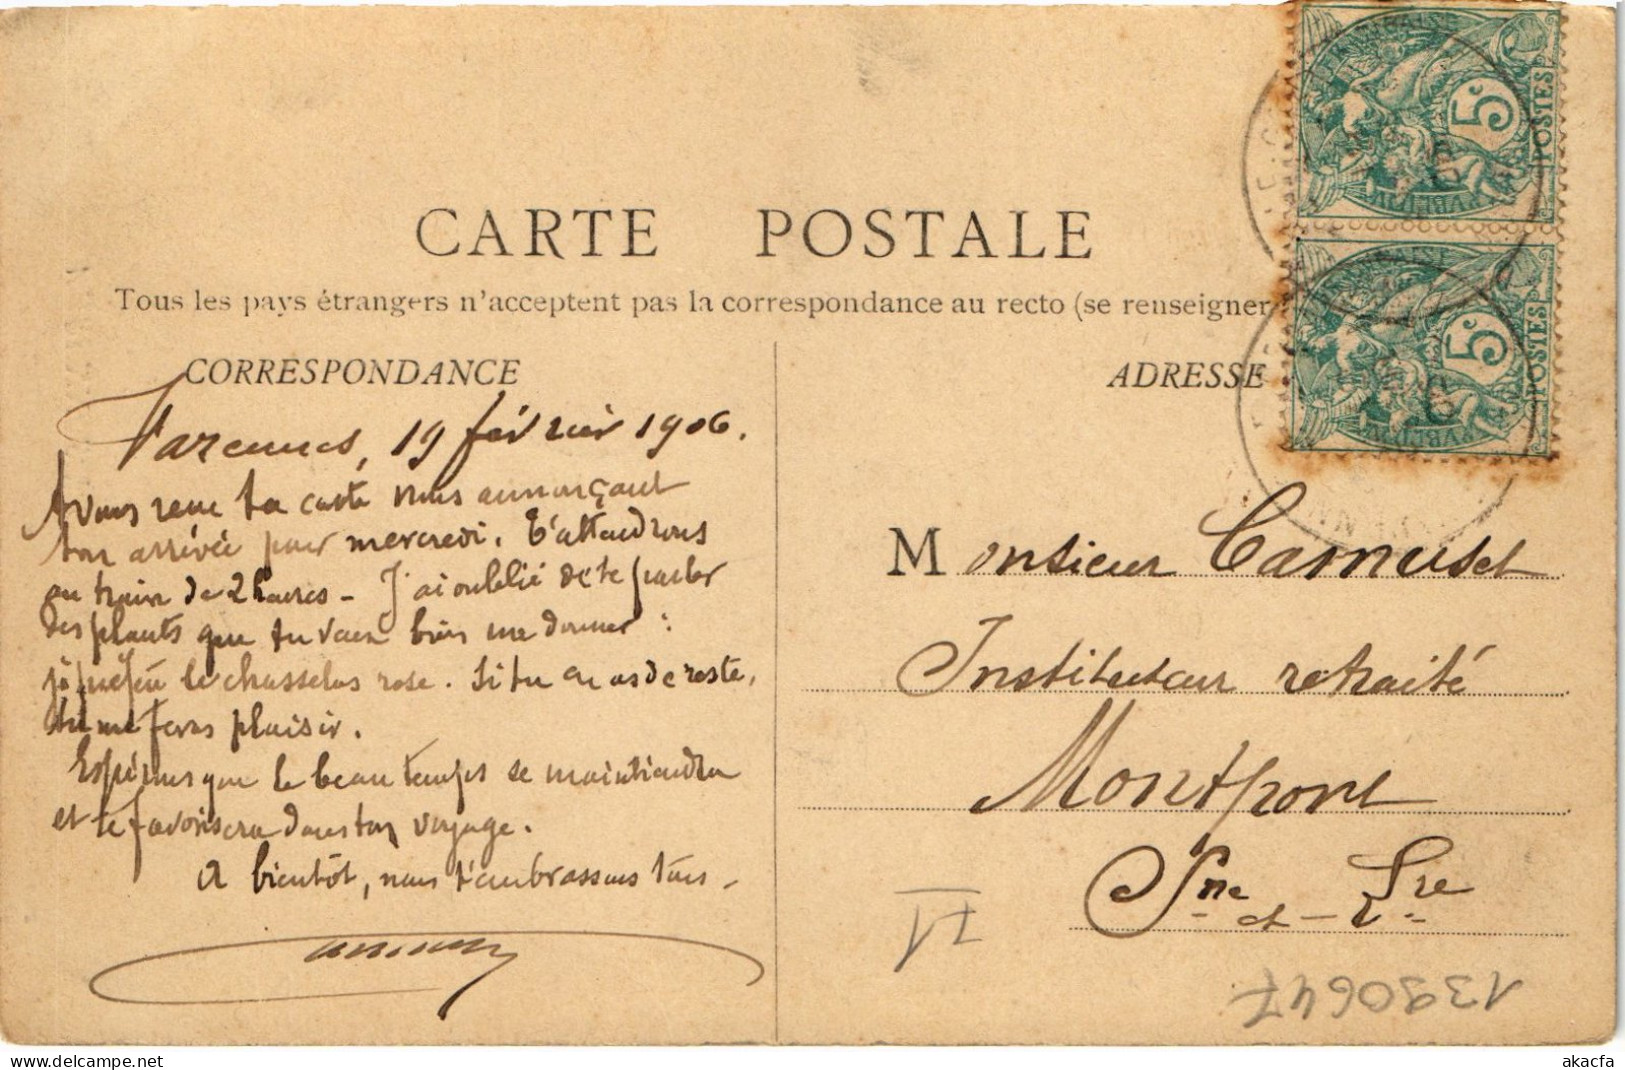 CARTE POSTALE
Tous les pays étrangers n'acceptent pas la correspondance au recto (se renseigner
CORRESPONDANCE
ADRESSE
Varennes, 19 février 1906.
Avons reçu ta carte nous annonçant
ton arrivée pour mercredi. T'attendrons
au train de 2 heures - J'ai oublié de te parler
des plants que tu veux bien me donner :
je préfère le chasselas rose. Si tu en as de reste,
tu me feras plaisir.
Espérons que le beau temps se maintiendra
et te favorisera dans ton voyage.
A bientôt, nous t'embrassons tous -
Monsieur Camuset
Instituteur retraité
Montpont
Sne et Lre
5c
POSTES
5c
POSTES
VI
1390647
akacfa